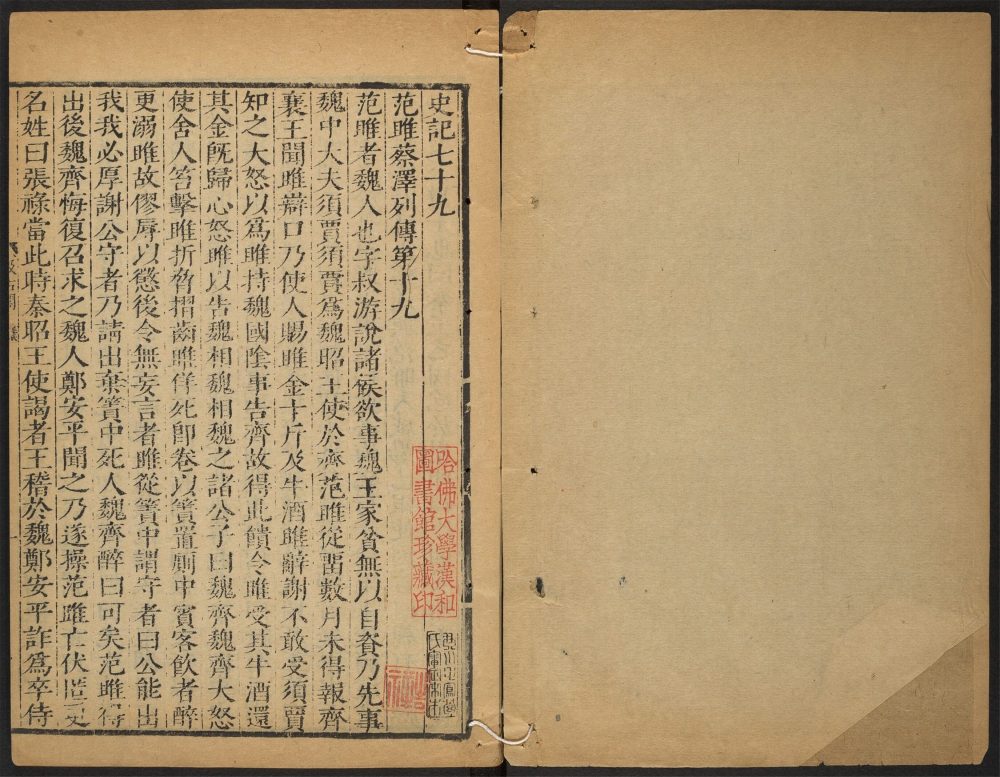 史記七十九
范雎蔡澤列傳第十九
范雎者魏人也字叔游說諸侯欲事魏王家貧無以自資乃先事
魏中大夫須賈須賈爲魏昭王使於齊范雎從畱數月未得報齊
襄王聞雎辯口乃使人賜雎金十斤及牛酒雎辭謝不敢受須賈
知之大怒以爲雎持魏國陰事告齊故得此饋令雎受其牛酒還
其金旣歸心怒雎以告魏相魏相魏之諸公子曰魏齊魏齊大怒
使舍人笞擊雎折脅摺齒雎佯死卽卷以簀置厠中賓客飮者醉
更溺雎故僇辱以懲後令無妄言者雎從簀中謂守者曰公能出
我我必厚謝公守者乃請出棄簀中死人魏齊醉曰可矣范雎得
出後魏齊悔復召求之魏人鄭安平聞之乃遂操范雎亡伏匿更
名姓曰張祿當此時秦昭王使謁者王稽於魏鄭安平詐爲卒侍
哈佛大學漢和
圖書館珍藏印